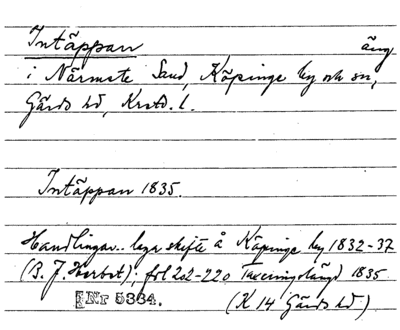 Intäppan äng
i Närmste Sand, Köpinge by och sn,
Gärds hd, Krstd. l.
Intäppan 1835.
Handlingar.. laga skifte å Köpinge by 1832-37
(B. J. Herbst); fol 202-220 Taxeringslängd 1835
Nr 5384. (K 14 Gärds hd)